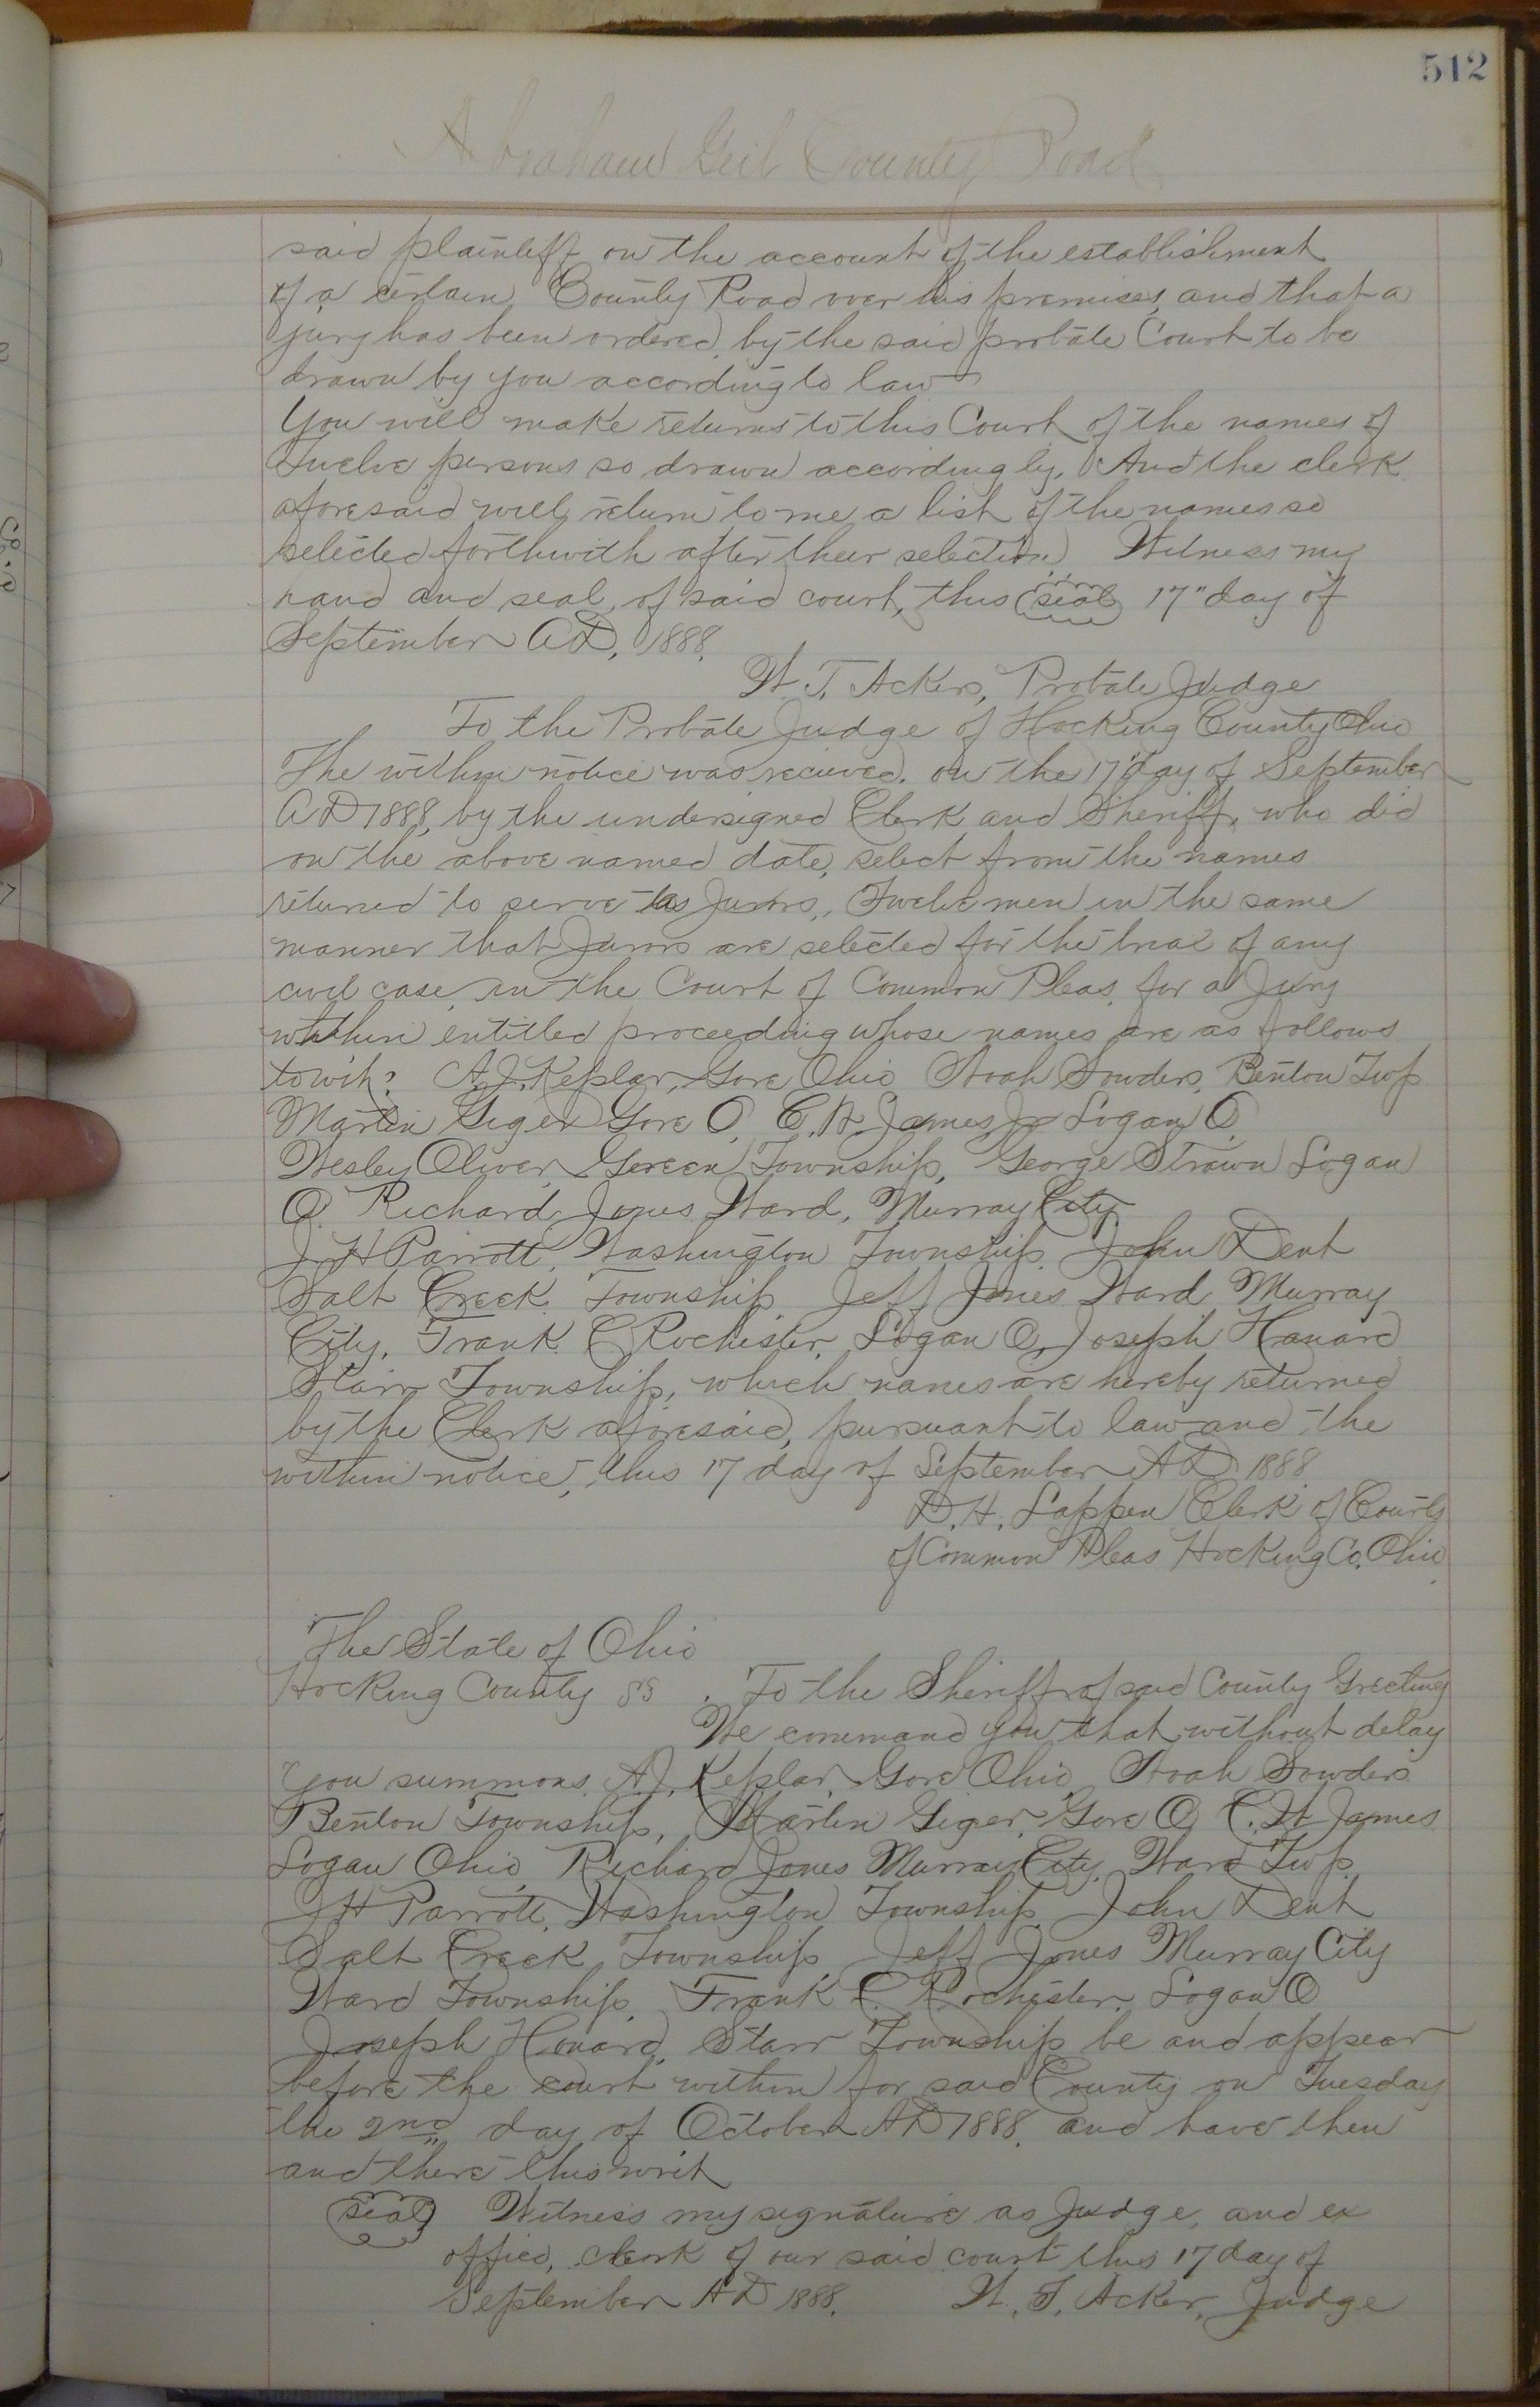 512
Abraham Geil County Road
said plaintiff on the account of the establishment
of a certain County Road over his premises, and that a
jury has been ordered by the said probate Court to be
drawn by you according to law
You will make returns to this Court of the names of
Twelve persons so drawn accordingly. And the clerk
aforesaid will return to me a list of the names so
selected forthwith after their selection Witness my
hand and seal, of said court, this (seal) 17" day of
September AD, 1888.
W. T. Acker, Probate Judge
To the Probate Judge of Hocking County Ohio
The within notice was recieved. on the 17" day of September
AD 1888, by the undersigned Clerk and Sheriff, who did
on the above named date, select from the names
returned to serve as Jurors, Twelve men in the same
manner that Jurors are selected for the trial of any
civil case in the Court of Common Pleas, for a Jury
within entitled proceeding whose names are as follows
towit: A. J. Keplar, Gore Ohio Noah Sowders, Benton Twp
Martin Giger Gore O, C. W. James Jr Logan O.
Wesley Oliver, Green Township, George Strawn Logan
O. Richard Jones Ward, Murray City
J H Parrott, Washington Township, John Dent
Salt Creek Township, Jeff Jones Ward, Murray
City, Frank C Rochester, Logan O, Joseph
Starr Township, which names are hereby returned
by the Clerk aforesaid, pursuant to law and the
within notice, this 17 day of September AD 1888.
D. H. Lappen Clerk of Courts
of Common Pleas Hocking Co. Ohio
The State of Ohio
Hocking County SS. To the Sheriff of said County Greeting
We command you that without delay
you summons A. J. Keplar, Gore Ohio Noah Sowders
Benton Township, Martin Giger, Gore O, C. W James
Logan Ohio, Richard Jones Murray City, Ward Twp.
J H Parrott, Washington Township, John Dent
Salt Creek Township Jeff Jones Murray City
Ward Township, Frank C. Rochester, Logan O
Joseph Starr Township be and appear
before the court within for said County on Tuesday
the 2nd day of October AD 1888. and have then
and there this writ
(seal) Witness my signature as Judge, and ex
officio, clerk of our said court this 17 day of
September AD 1888. W. T. Acker, Judge